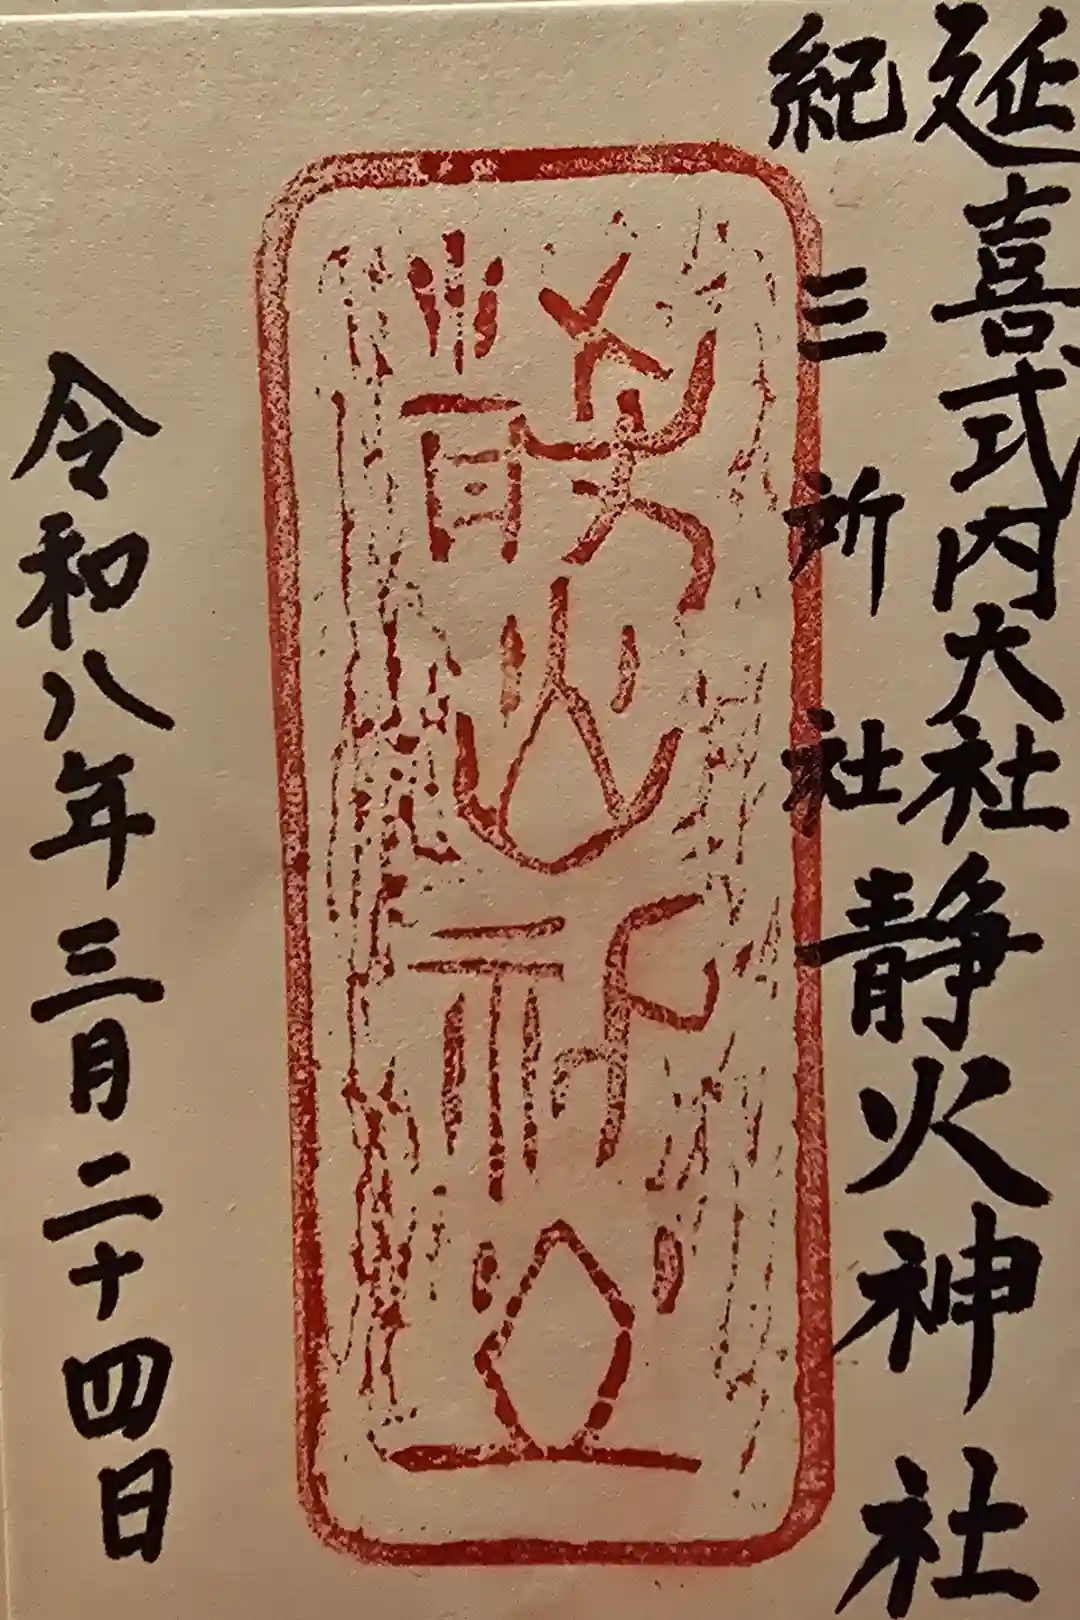 延喜式内大社静火神社
紀三所社
令和八年三月二十四日